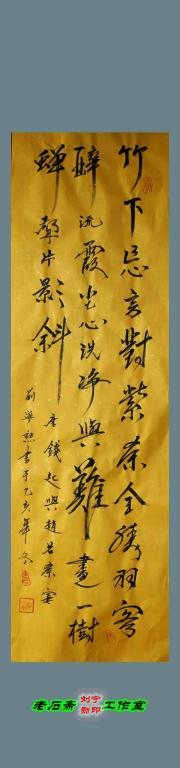 竹下忘言對紫茶全勝羽客
醉流霞尘心洗净興難盡一樹
蝉聲片影斜
唐錢起與趙莒茶宴
刘寧勳書于乙亥年冬
老石斋 刘宁勋印 工作室